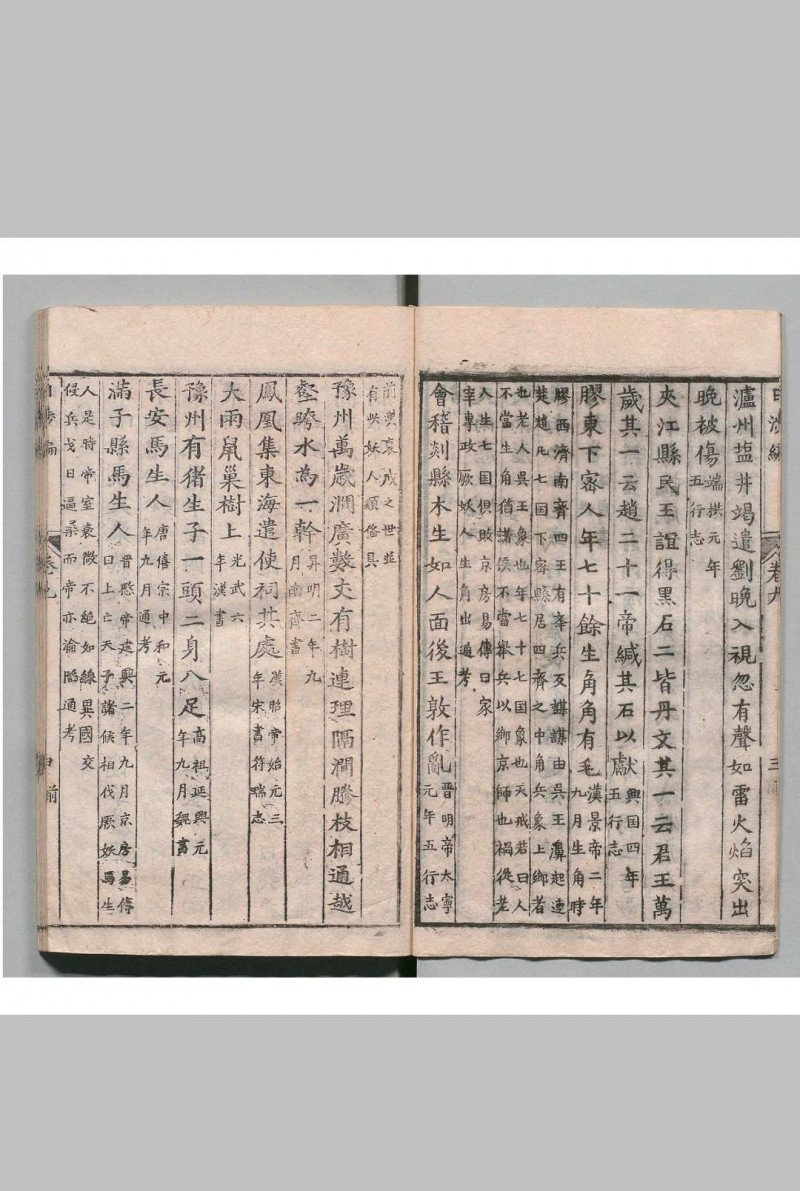 瀘州塩井竭遣劉晚入視忽有聲如雷火焰突出
晚被傷端拱元年五行志
夾江縣民王誼得黑石二皆丹文其一云君王萬
歲其一云趙二十一帝緘其石以獻興国四年五行志
膠東下密人年七十餘生角角有毛漢景帝二年九月生角時
膠西濟南齊四王有舉兵反謀謀由吳王濞起連
楚趙凡七国下密縣居四齊之中角兵象上鄉者
也老人吳王象也年七十七国象也天戒若曰人
不當生角猶諸侯不當舉兵以鄉京師也禍從老
人生七国俱敗京房易傳曰冢
宰專政厥妖人生角出通考
會稽剡縣木生如人面後王敦作亂晋明帝太寧元年五行志
日涉編
卷九
三
前漢哀成之世並
有此妖人頭俻具
豫州萬歲澗廣數丈有樹連理隔澗騰枝相通越
壑跨水為一幹昇明二年九月南齊書
鳳凰集東海遣使祠其處漢昭帝始元三年宋書符瑞志
大雨鼠巢樹上光武六年漢書
豫州有猪生子一頭二身八足高祖延興元年九月魏書
長安馬生人唐僖宗中和元年九月通考
滿子縣馬生人晋愍帝建興二年九月京房易傳曰上亡天子諸侯相伐厥妖馬生
人是時帝室衰微不絶如線異國交
侵兵戈日逼尋而帝亦淪陷通考
日涉編
卷九